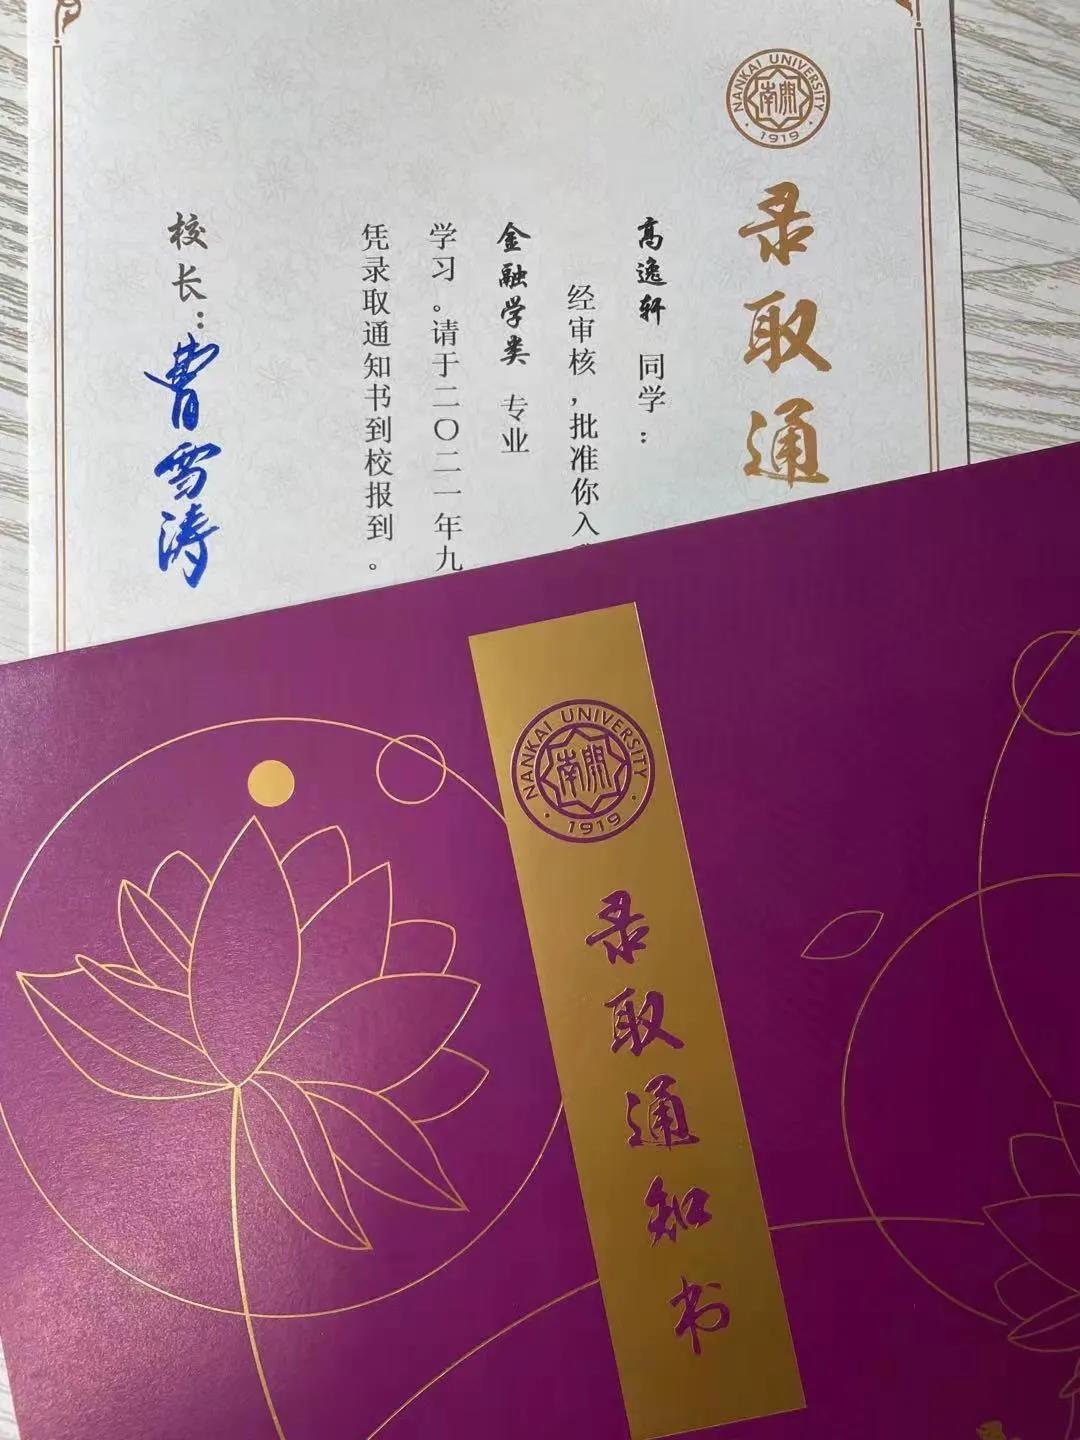 NANKAI UNIVERSITY
南開
1919
录取通
高逸轩 同学：
经审核，批准你入
金融学类 专业
学习。请于二〇二一年九
凭录取通知书到校报到。
校长：曹雪涛
NANKAI UNIVERSITY
南開
1919
录取通知书